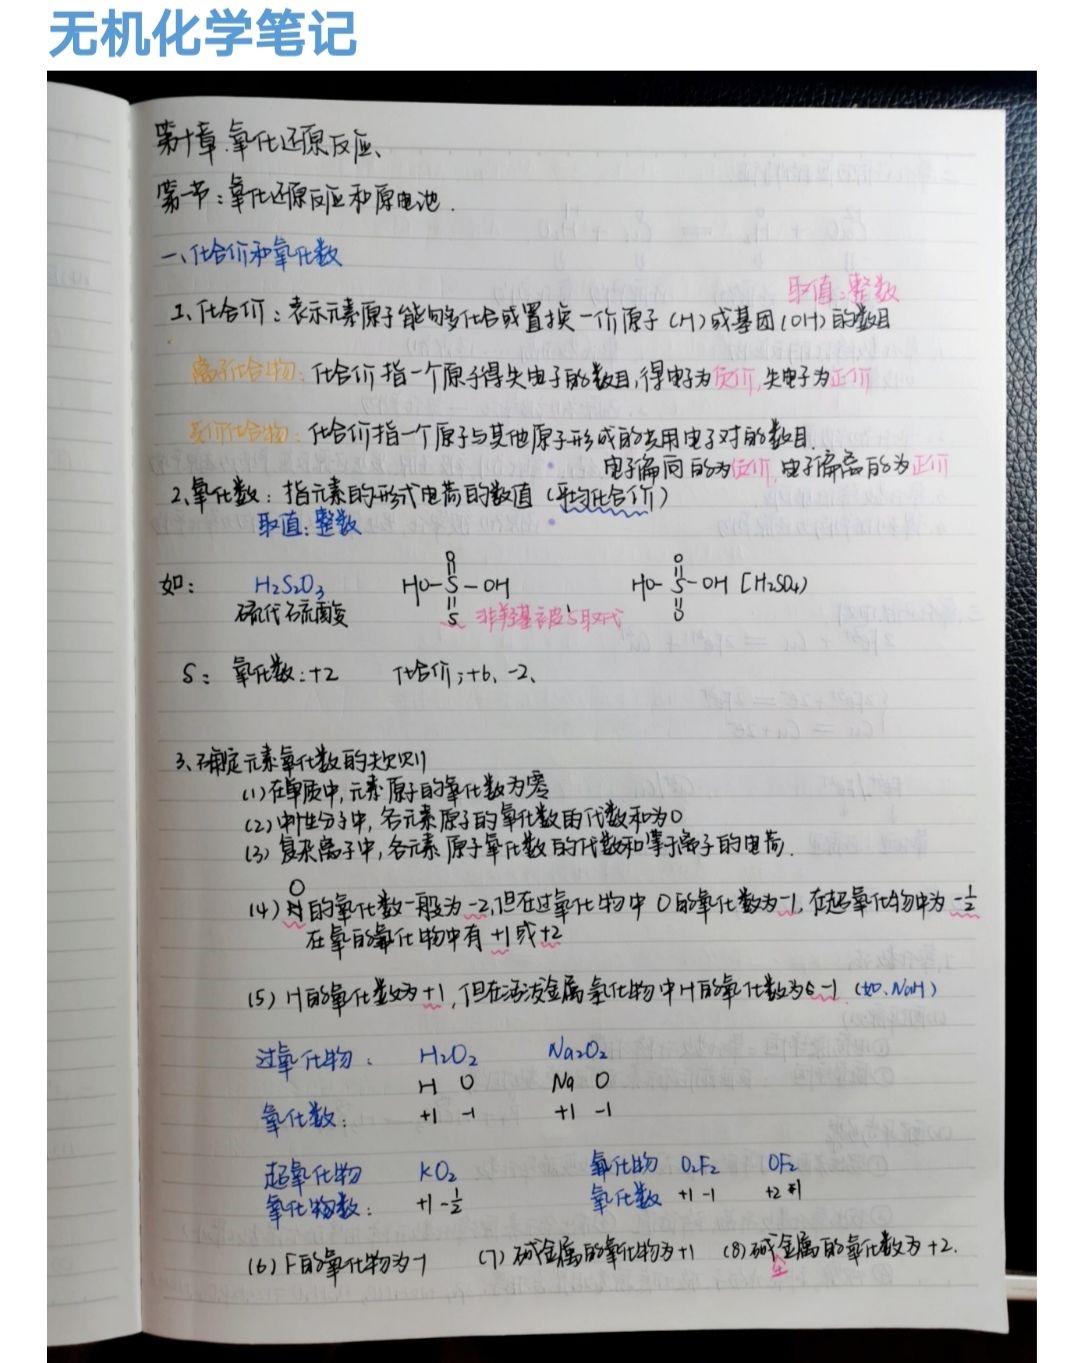 无机化学笔记
第十章.氧化还原反应、
第一节:氧化还原反应和原电池.
一、化合价和氧化数
取值:整数
1、化合价:表示元素原子能够化合或置换一价原子(H)或基团(OH)的数目
离子化合物:化合价指一个原子得失电子的数目,得电子为负价,失电子为正价
共价化合物:化合价指一个原子与其他原子形成的共用电子对的数目.
电子偏向的为负价,电子偏离的为正价
2、氧化数:指元素的形式电荷的数值(平均化合价)
取值:整数
如: H₂S₂O₃ HO-S-OH HO-S-OH [H₂SO₄)
O O
S O
硫代硫酸酸 非羟基氧被S取代
S: 氧化数:+2 化合价;+6、-2、
3、确定元素氧化数的规则
(1)在单质中,元素原子的氧化数为零
(2)中性分子中,各元素原子的氧化数的代数和为0
(3)复杂离子中,各元素原子氧化数的代数和等于离子的电荷.
(4) O的氧化数一般为-2,但在过氧化物中O的氧化数为-1,在超氧化物中为-½
在氧的氟化物中有+1或+2
(5)H的氧化数为+1,但在活泼金属氢化物中H的氧化数为-1 (如.NaH)
过氧化物: H₂O₂ Na₂O₂
H O Na O
氧化数: +1 -1 +1 -1
超氧化物 KO₂ 氧化物 O₂F₂ OF₂
氧化物数: +1 -½ 氧化数 +1 -1 +2 -1
(6)F的氧化物为-1 (7)碱金属的氧化物为+1 (8)碱土金属的氧化数为+2.